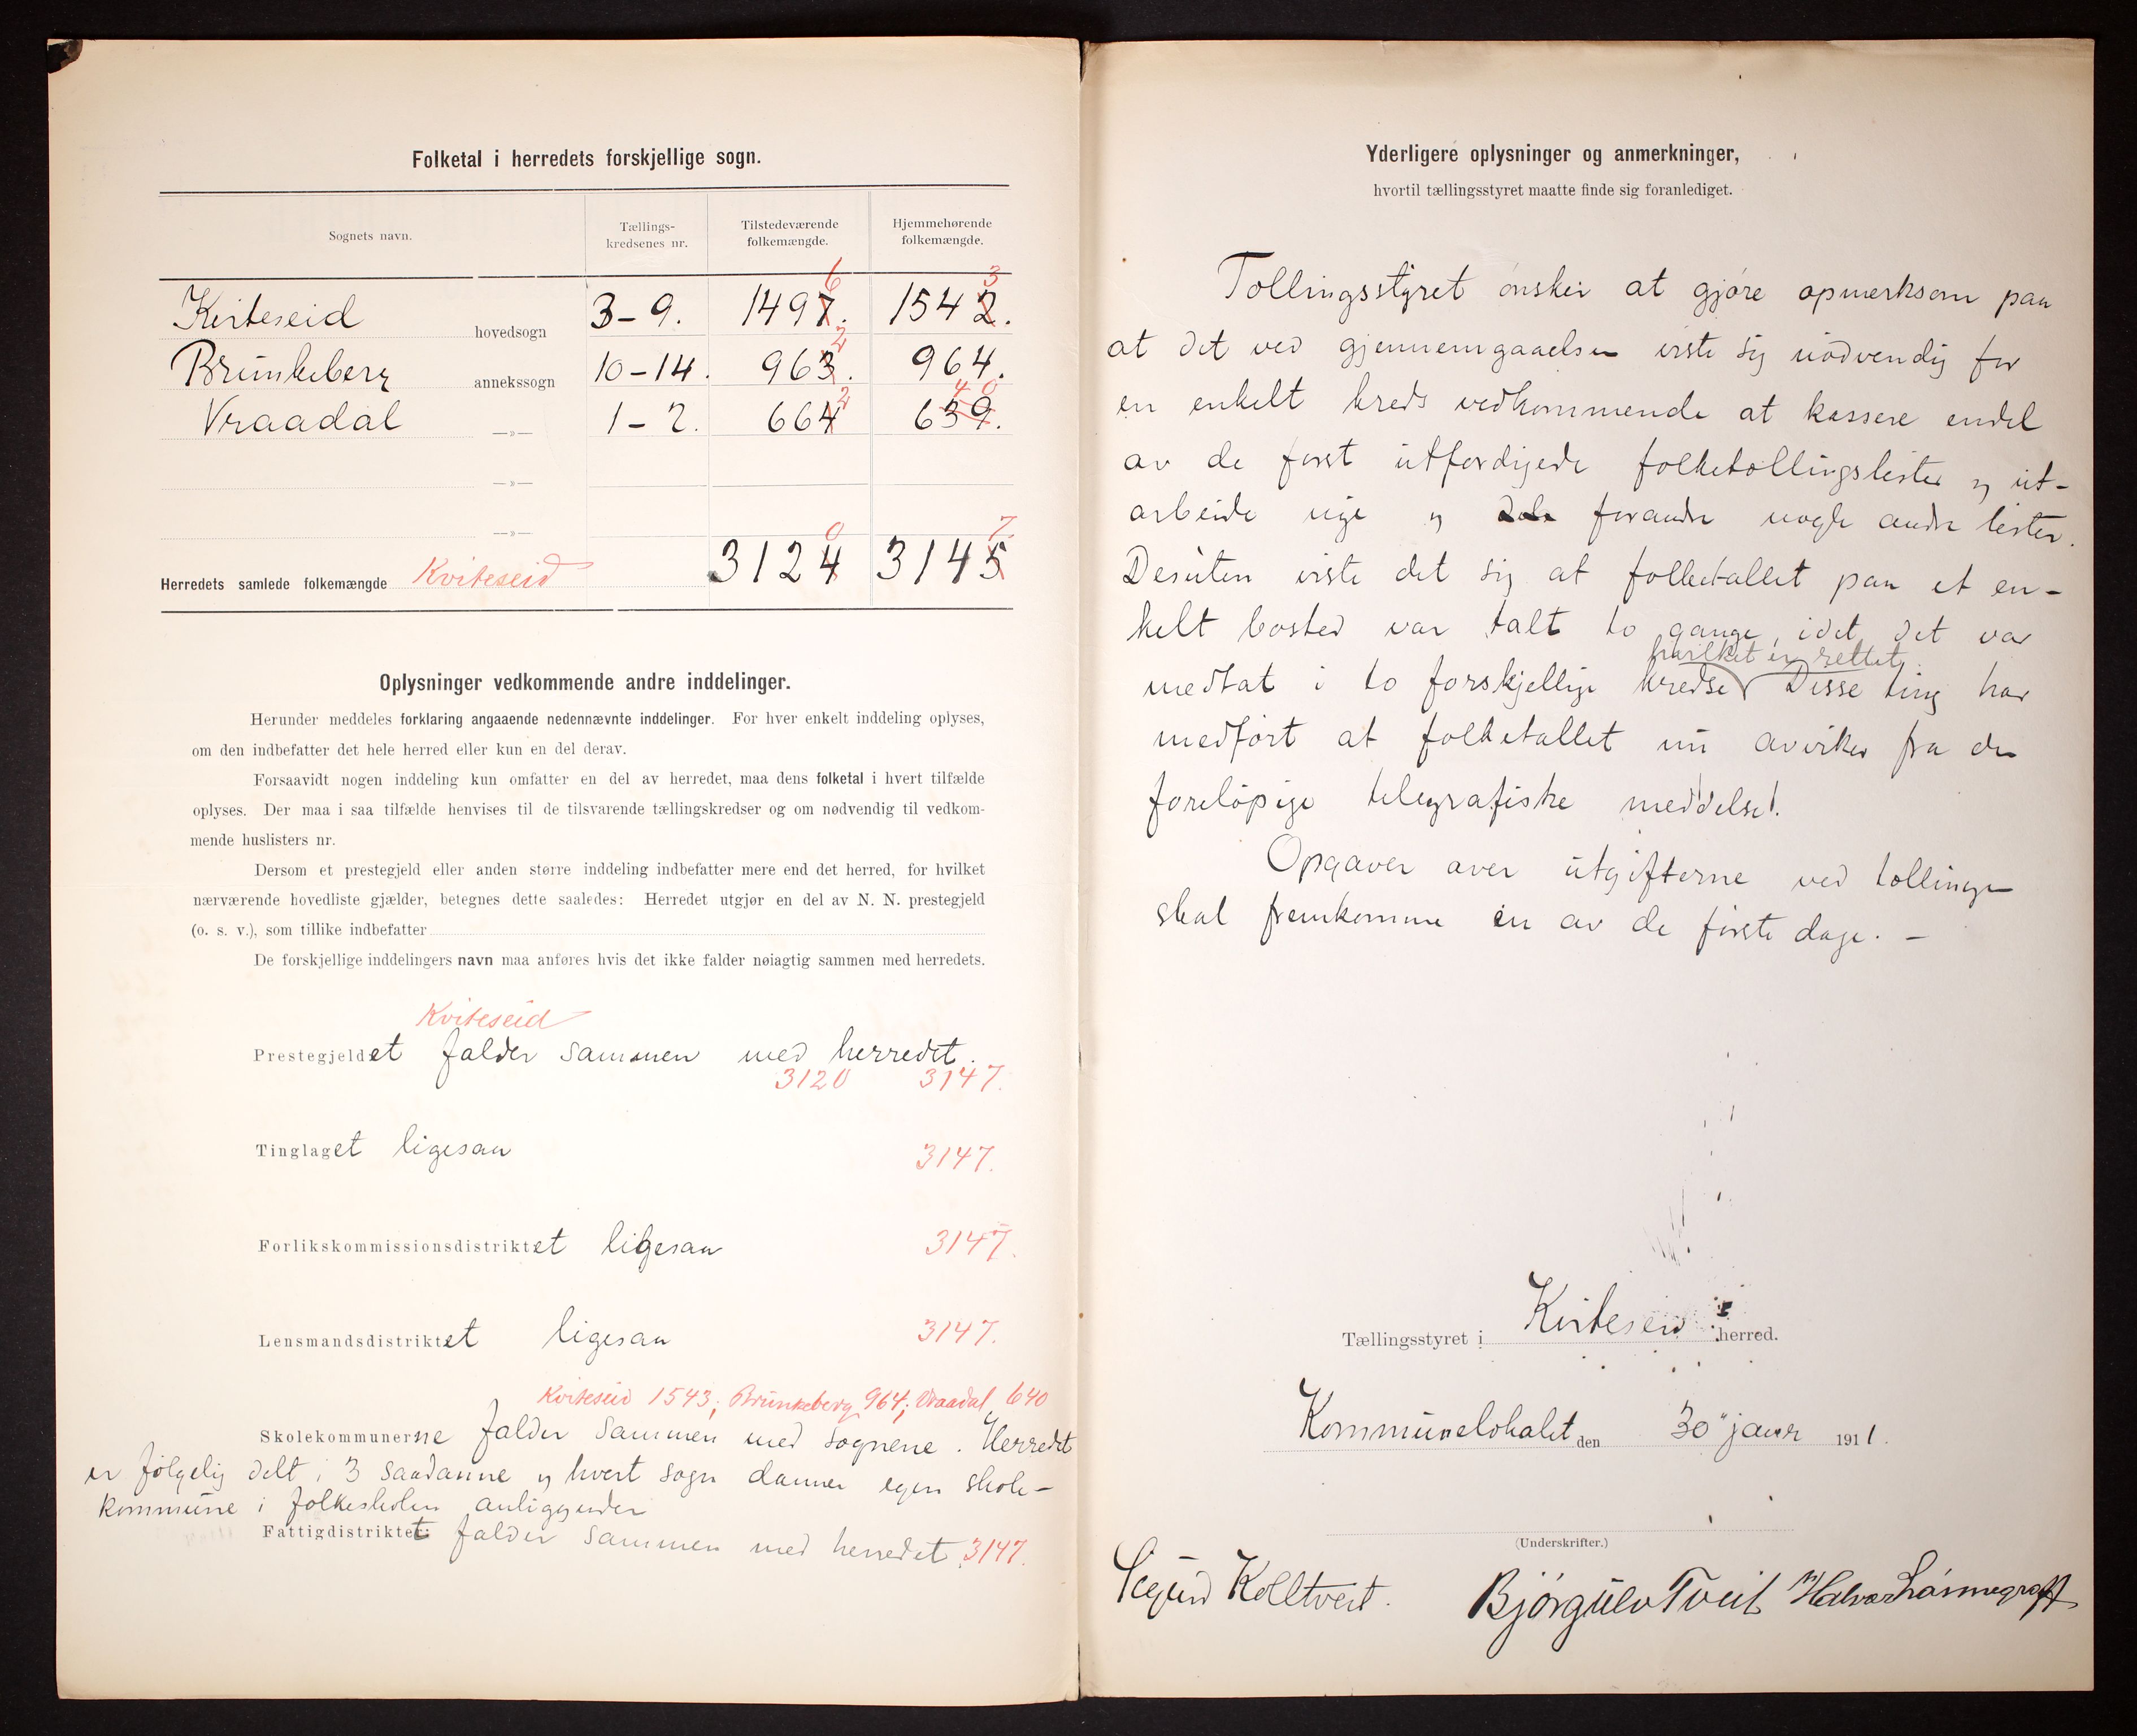 Folketal i herredets forskjellige sogn.
Sognets navn. Tællings-kredsenes nr. Tilstedeværende folkemængde. Hjemmehørende folkemængde.
6 3
Kviteseid hovedsogn 3-9. 1497. 1542.
2
Brunkeberg annekssogn 10-14. 963. 964.
2 40
Vraadal —»— 1-2. 664 639.
—»—
—»—
0 7.
Herredets samlede folkemængde Kviteseid 3124 3145
Oplysninger vedkommende andre inddelinger.
Herunder meddeles forklaring angaaende nedennævnte inddelinger. For hver enkelt inddeling oplyses,
om den indbefatter det hele herred eller kun en del derav.
Forsaavidt nogen inddeling kun omfatter en del av herredet, maa dens folketal i hvert tilfælde
oplyses. Der maa i saa tilfælde henvises til de tilsvarende tællingskredser og om nødvendig til vedkom-
mende huslisters nr.
Dersom et prestegjeld eller anden større inddeling indbefatter mere end det herred, for hvilket
nærværende hovedliste gjælder, betegnes dette saaledes: Herredet utgjør en del av N. N. prestegjeld
(o. s. v.), som tillike indbefatter
De forskjellige inddelingers navn maa anføres hvis det ikke falder nøiagtig sammen med herredets.
Kviteseid
Prestegjeldet falder sammen med herredet.
3120 3147.
Tinglaget ligesaa 3147.
Forlikskommissionsdistriktet ligesaa 3147.
Lensmandsdistriktet ligesaa 3147.
Kviteseid 1543; Brunkeberg 964; Vraadal 640
Skolekommunerne falder sammen med sognene. Herredet
er følgelig delt i 3 saadanne og hvert sogn danner egen skole-
kommune i folkeskolen anliggender
Fattigdistriktet falder sammen med herredet 3147.
Yderligere oplysninger og anmerkninger,
hvortil tællingsstyret maatte finde sig foranlediget.
Tællingsstyret ønsker at gjøre opmerksom paa
at det ved gjennemgaaelsen viste sig nødvendig for
en enkelt kreds vedkommende at kassere endel
av de først utfærdigede folketællingslister og ut-
arbeide nye og forandre nogle andre lister.
Desuten viste det sig at folketallet paa et en-
kelt bosted var talt to gange, idet det var
hvilket er rettet.
medtat i to forskjellige kredse Disse ting har
medført at folketallet nu avviker fra den
foreløpige telegrafiske meddelse!.
Opgaver over utgifterne ved tællingen
skal fremkomme en av de første dage. —
Tællingsstyret i Kviteseid herred.
Kommunelokalet den 30" januar 1911.
(Underskrifter.)
Kolltveit. Bjørgulv Tveit Halvor